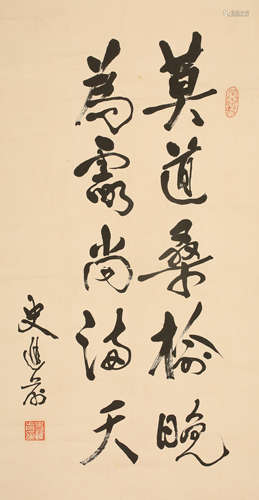 莫道桑榆晚
為霞尚滿天
史進前